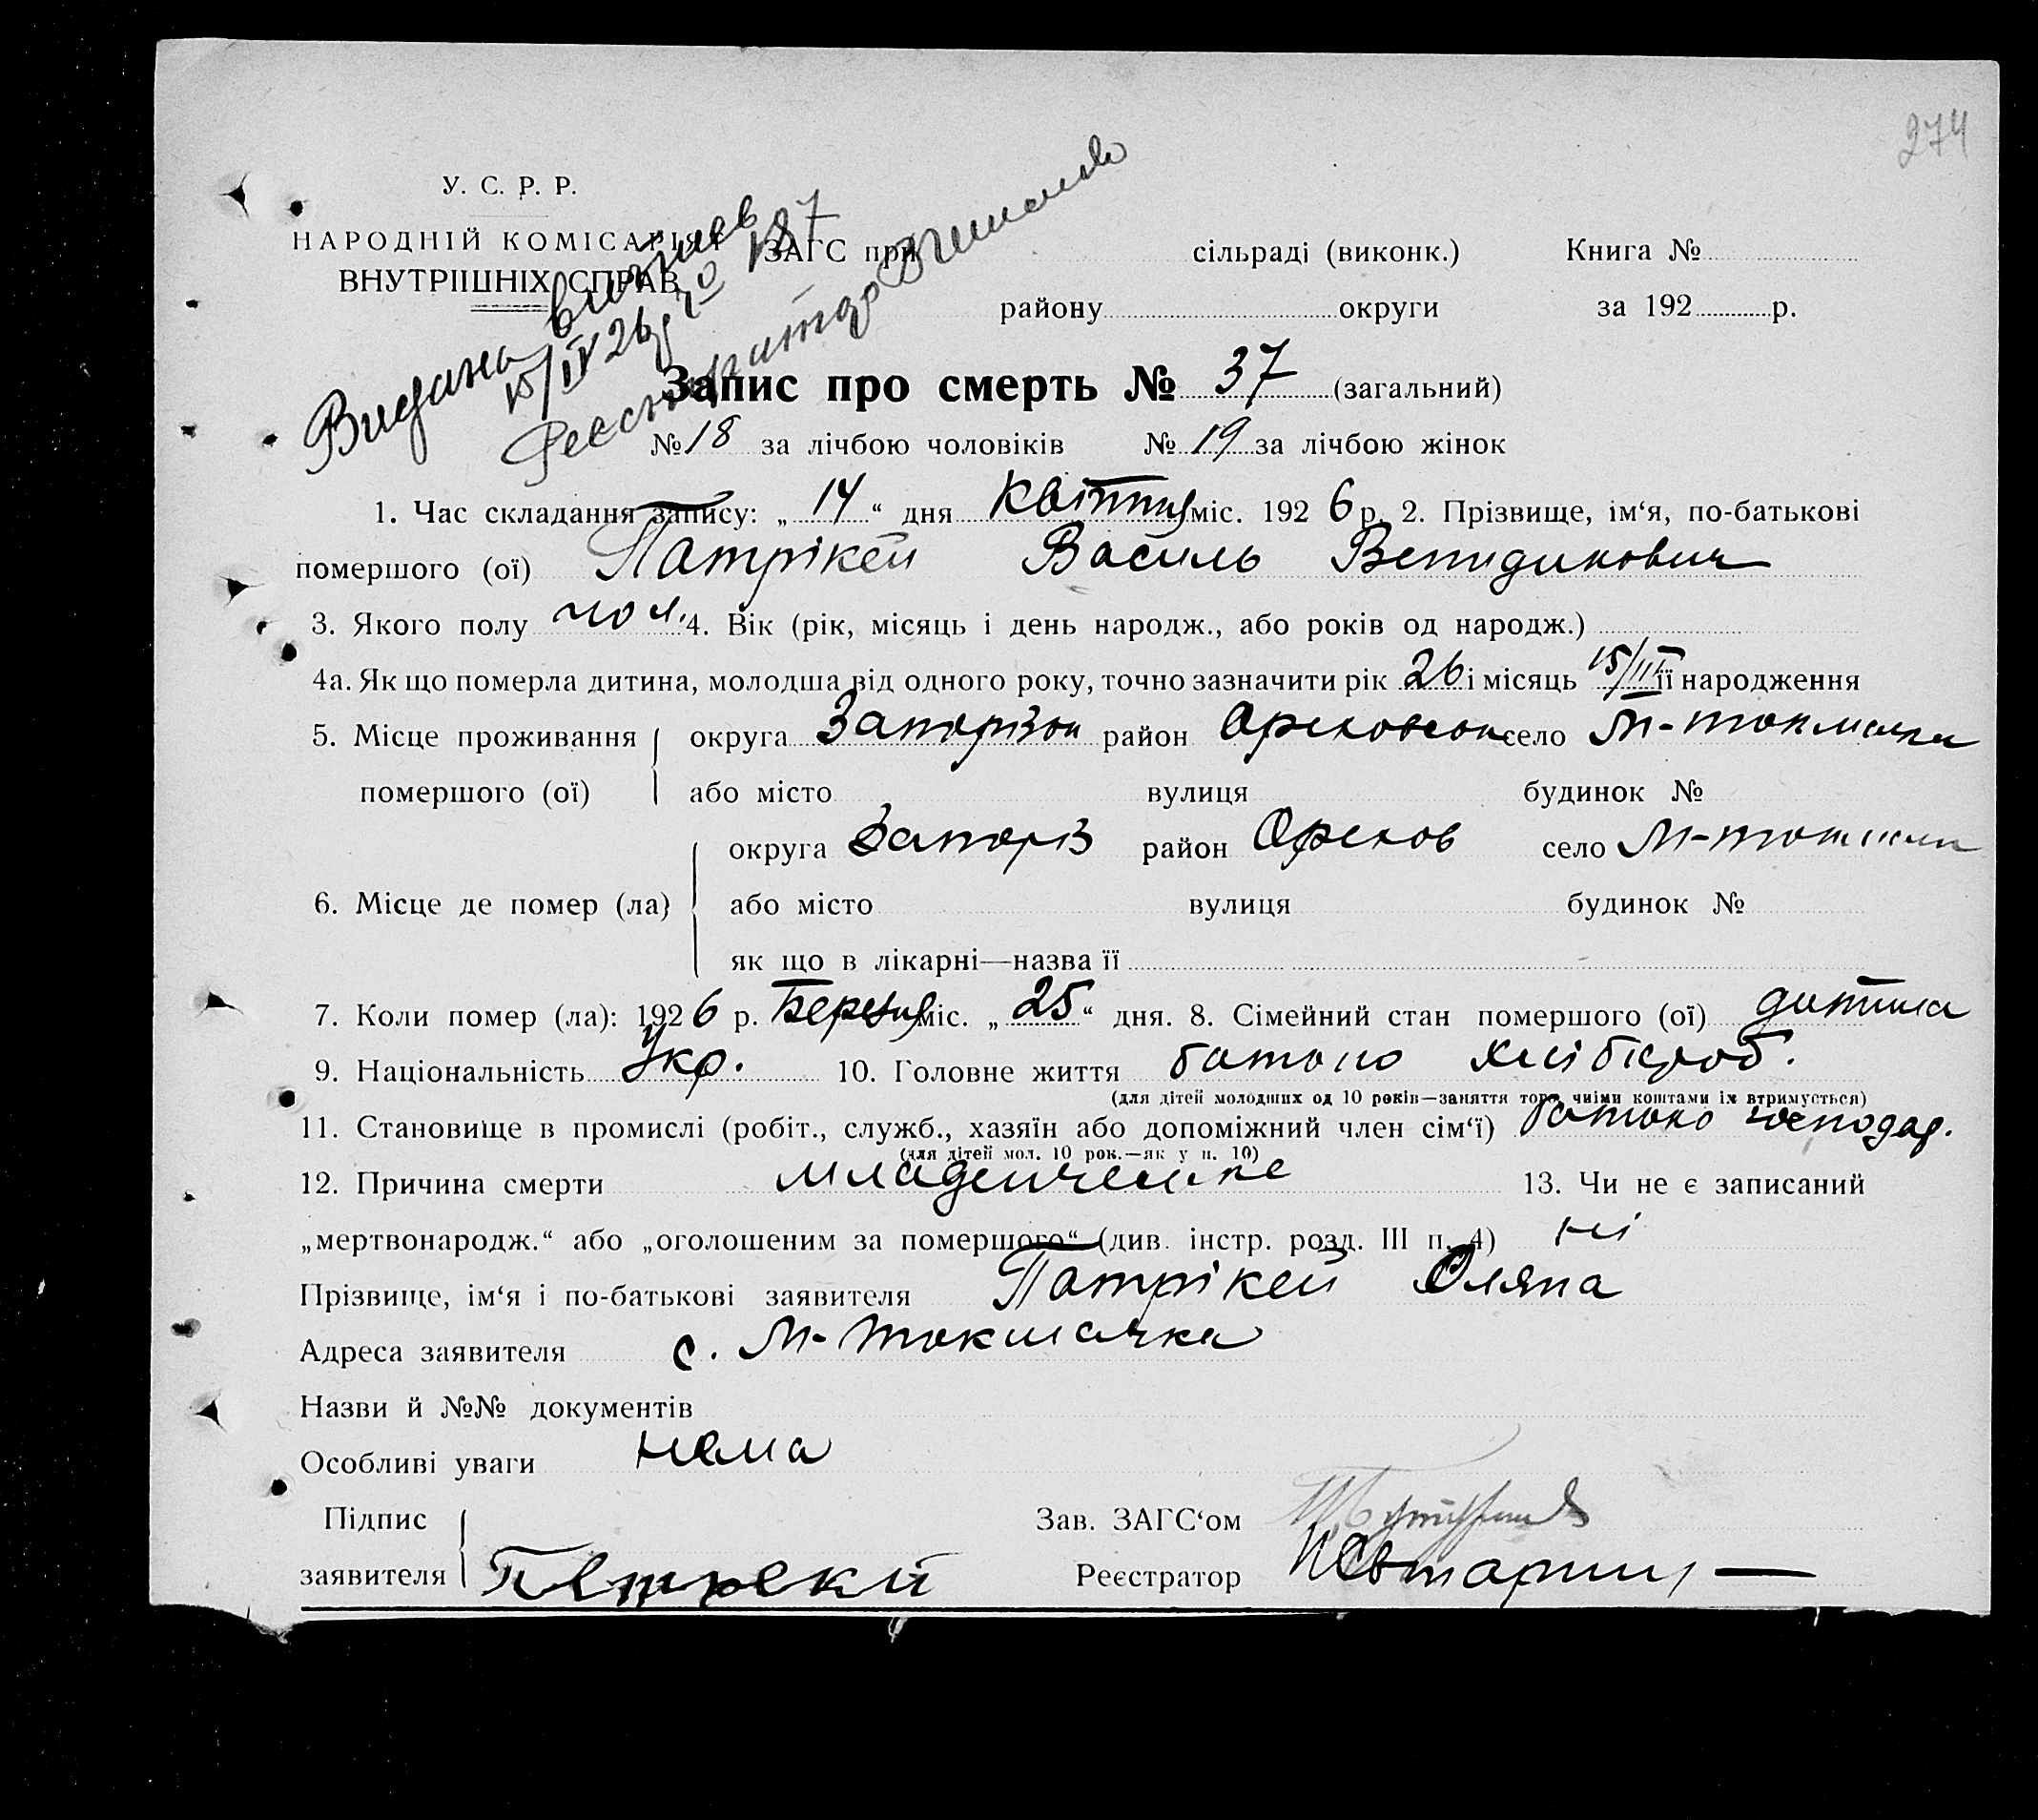 274
У. С. Р. Р.
НАРОДНІЙ КОМІСАРІЯТ
ВНУТРІШНІХ СПРАВ
ЗАГС при сільраді (виконк.) Книга №
району округи за 192 р.
Видана
15/IV 26 р. 187
Реєстратор
Запис про смерть № 37 (загальний)
№ 18 за лічбою чоловіків № 19 за лічбою жінок
1. Час складання запису: „ 14 “ дня Квітня міс. 192 6 р. 2. Прізвище, ім‘я, по-батькові
помершого (ої) Патрікей Василь
3. Якого полу чол. 4. Вік (рік, місяць і день народж., або років од народж.)
4а. Як що померла дитина, молодша від одного року, точно зазначити рік 26 і місяць 15/III її народження
5. Місце проживання округа Запорізьк район Ореховськ село М-Токмачка
помершого (ої) або місто вулиця будинок №
округа Запоріз район Орехов село М-Токмачк
6. Місце де помер (ла) або місто вулиця будинок №
як що в лікарні—назва її
7. Коли помер (ла): 192 6 р. Березня міс. „ 25 “ дня. 8. Сімейний стан помершого (ої) дитина
9. Національність Укр. 10. Головне життя батько хлібороб.
(для дітей молодших од 10 років—заняття того, чиїми коштами їх втримується)
11. Становище в промислі (робіт., служб., хазяїн або допоміжний член сім‘ї) батько господар.
(для дітей мол. 10 рок.—як у п. 10)
12. Причина смерти младенческе 13. Чи не є записаний
„мертвонародж.“ або „оголошеним за помершого“ (див. інстр. розд. III п. 4) ні
Прізвище, ім‘я і по-батькові заявителя Патрікей Оляна
Адреса заявителя с. М-Токмачка
Назви й №№ документів
Особливі уваги нема
Підпис Зав. ЗАГС‘ом
заявителя Петрекй Реєстратор